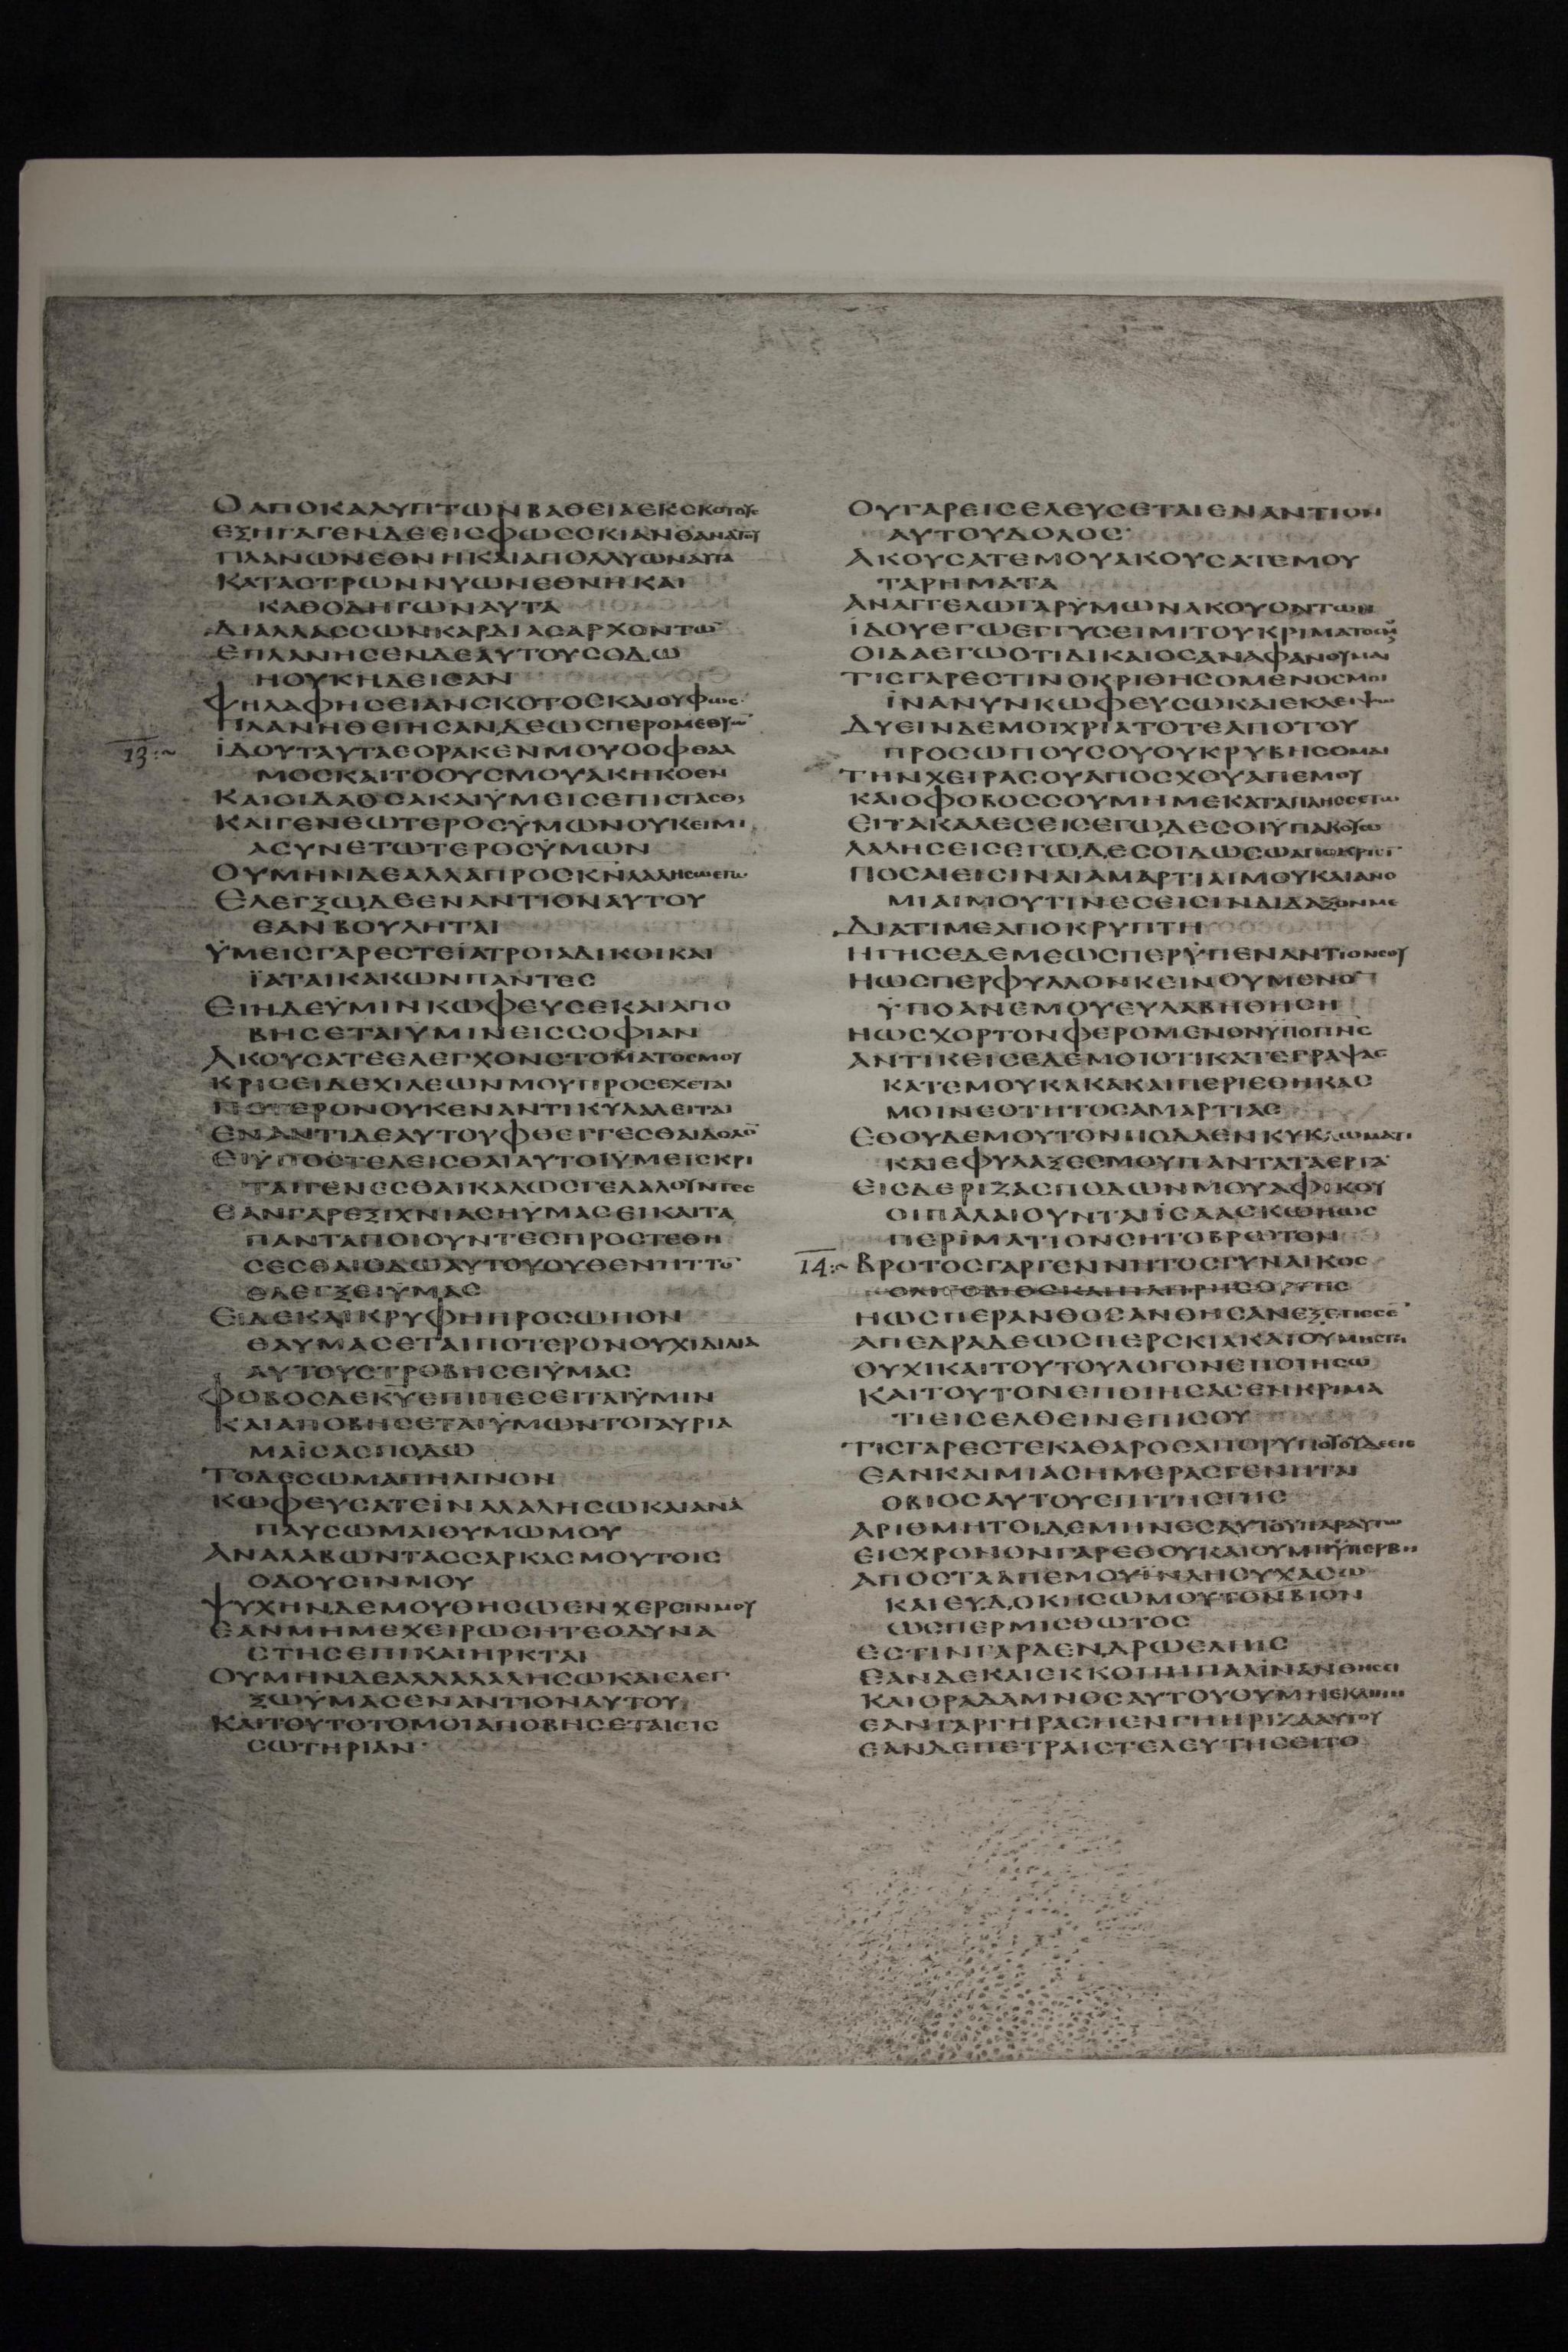 ΟΑΠΟΚΑΛΥΠΤΩΝΒΑΘΕΙΑΕΚΣΚΟΤΟΥΣ
ΕΞΗΓΑΓΕΝΔΕΕΙΣΦΩΣΣΚΙΑΝΘΑΝΑΤΟΥ
ΠΛΑΝΩΝΕΘΝΗΚΑΙΑΠΟΛΛΥΩΝΑΥΤΑ
ΚΑΤΑΣΤΡΩΝΝΥΩΝΕΘΝΗΚΑΙ
ΚΑΘΟΔΗΓΩΝΑΥΤΑ
ΔΙΑΛΛΑΣΣΩΝΚΑΡΔΙΑΣΑΡΧΟΝΤΩ̅
ΕΠΛΑΝΗΣΕΝΔΕΑΥΤΟΥΣΟΔΩ
ΗΟΥΚΗΔΕΙΣΑΝ
ΨΗΛΑΦΗΣΕΙΑΝΣΚΟΤΟΣΚΑΙΟΥΦΩΣ
ΠΛΑΝΗΘΕΙΗΣΑΝΔΕΩΣΠΕΡΟΜΕΘΥΩ̅
13:~ ΪΔΟΥΤΑΥΤΑΕΟΡΑΚΕΝΜΟΥΟΟΦΘΑΛ
ΜΟΣΚΑΙΤΟΟΥΣΜΟΥΑΚΗΚΟΕΝ
ΚΑΙΟΙΔΑΟΣΑΚΑΙΫΜΕΙΣΕΠΙΣΤΑΣΘΕ
ΚΑΙΓΕΝΕΩΤΕΡΟΣΫΜΩΝΟΥΚΕΙΜΙ
ΑΣΥΝΕΤΩΤΕΡΟΣΫΜΩΝ
ΟΥΜΗΝΔΕΑΛΛΑΠΡΟΣΚ̅Ν̅ΛΑΛΗΣΩΕΓΩ
ΕΛΕΓΞΩΔΕΕΝΑΝΤΙΟΝΑΥΤΟΥ
ΕΑΝΒΟΥΛΗΤΑΙ
ΫΜΕΙΣΓΑΡΕΣΤΕΪΑΤΡΟΙΑΔΙΚΟΙΚΑΙ
ΪΑΤΑΙΚΑΚΩΝΠΑΝΤΕΣ
ΕΙΗΔΕΫΜΙΝΚΩΦΕΥΣΕΚΑΙΑΠΟ
ΒΗΣΕΤΑΙΫΜΙΝΕΙΣΣΟΦΙΑΝ
ΑΚΟΥΣΑΤΕΕΛΕΓΧΟΝΣΤΟΜΑΤΟΣΜΟΥ
ΚΡΙΣΕΙΔΕΧΙΛΕΩΝΜΟΥΠΡΟΣΕΧΕΤΑΙ
ΠΟΤΕΡΟΝΟΥΚΕΝΑΝΤΙΚ̅Υ̅ΛΑΛΕΙΤΑΙ
ΕΝΑΝΤΙΔΕΑΥΤΟΥΦΘΕΓΓΕΣΘΑΙΔΟΛΟ̅
ΕΙΫΠΟΣΤΕΛΕΙΣΘΑΙΑΥΤΟΙΫΜΕΙΣΚΡΙ
ΤΑΙΓΕΝΕΣΘΑΙΚΑΛΩΣΓΕΛΑΛΟΥΝΤΕΣ
ΕΑΝΓΑΡΕΞΙΧΝΙΑΣΗΥΜΑΣΕΙΚΑΙΤΑ
ΠΑΝΤΑΠΟΙΟΥΝΤΕΣΠΡΟΣΤΕΘΗ
ΣΕΣΘΑΙΟΔΩΑΥΤΟΥΟΥΘΕΝΗΤΤΟ̅
ΕΛΕΓΞΕΙΫΜΑΣ
ΕΙΔΕΚΑΙΚΡΥΦΗΠΡΟΣΩΠΟΝ
ΘΑΥΜΑΣΕΤΑΙΠΟΤΕΡΟΝΟΥΧΙΔΙΝΑ
ΑΥΤΟΥΣΤΡΟΒΗΣΕΙΫΜΑΣ
ΦΟΒΟΣΔΕΚ̅Υ̅ΕΠΙΠΕΣΕΙΤΑΙΫΜΙΝ
ΚΑΙΑΠΟΒΗΣΕΤΑΙΫΜΩΝΤΟΓΑΥΡΙΑ
ΜΑΪΣΑΣΠΟΔΩ
ΤΟΔΕΣΩΜΑΠΗΛΙΝΟΝ
ΚΩΦΕΥΣΑΤΕΪΝΑΛΑΛΗΣΩΚΑΙΑΝΑ
ΠΑΥΣΩΜΑΙΘΥΜΩΜΟΥ
ΑΝΑΛΑΒΩΝΤΑΣΣΑΡΚΑΣΜΟΥΤΟΙΣ
ΟΔΟΥΣΙΝΜΟΥ
ΨΥΧΗΝΔΕΜΟΥΘΗΣΩΕΝΧΕΡΣΙΝΜΟΥ
ΕΑΝΜΗΜΕΧΕΙΡΩΣΗΤΕΟΔΥΝΑ
ΣΤΗΣΕΠΙΚΑΙΗΡΚΤΑΙ
ΟΥΜΗΝΔΕΑΛΛΑΛΑΛΗΣΩΚΑΙΕΛΕΓ
ΞΩΫΜΑΣΕΝΑΝΤΙΟΝΑΥΤΟΥ
ΚΑΙΤΟΥΤΟΤΟΜΟΙΑΠΟΒΗΣΕΤΑΙΕΙΣ
ΣΩΤΗΡΙΑΝ
ΟΥΓΑΡΕΙΣΕΛΕΥΣΕΤΑΙΕΝΑΝΤΙΟΝ
ΑΥΤΟΥΔΟΛΟΣ
ΑΚΟΥΣΑΤΕΜΟΥΑΚΟΥΣΑΤΕΜΟΥ
ΤΑΡΗΜΑΤΑ
ΑΝΑΓΓΕΛΩΓΑΡΫΜΩΝΑΚΟΥΟΝΤΩΝ
ΪΔΟΥΕΓΩΕΓΓΥΣΕΙΜΙΤΟΥΚΡΙΜΑΤΟΣΜΟΥ
ΟΙΔΑΕΓΩΟΤΙΔΙΚΑΙΟΣΑΝΑΦΑΝΟΥΜΑΙ
ΤΙΣΓΑΡΕΣΤΙΝΟΚΡΙΘΗΣΟΜΕΝΟΣΜΟΙ
ΪΝΑΝΥΝΚΩΦΕΥΣΩΚΑΙΕΚΛΕΙΨΩ
ΔΥΕΙΝΔΕΜΟΙΧΡΙΑΤΟΤΕΑΠΟΤΟΥ
ΠΡΟΣΩΠΟΥΣΟΥΟΥΚΡΥΒΗΣΟΜΑΙ
ΤΗΝΧΕΙΡΑΣΟΥΑΠΟΣΧΟΥΑΠΕΜΟΥ
ΚΑΙΟΦΟΒΟΣΣΟΥΜΗΜΕΚΑΤΑΠΛΗΣΣΕΤΩ
ΕΙΤΑΚΑΛΕΣΕΙΣΕΓΩΔΕΣΟΙΫΠΑΚΟΥΣΩ
ΛΑΛΗΣΕΙΣΕΓΩΔΕΣΟΙΔΩΣΩΑΠΟΚΡΙΣΙ̅
ΠΟΣΑΙΕΙΣΙΝΑΙΑΜΑΡΤΙΑΙΜΟΥΚΑΙΑΝΟ
ΜΙΑΙΜΟΥΤΙΝΕΣΕΙΣΙΝΔΙΔΑΞΟΝΜΕ
ΔΙΑΤΙΜΕΑΠΟΚΡΥΠΤΗ
ΗΓΗΣΕΔΕΜΕΩΣΠΕΡΫΠΕΝΑΝΤΙΟΝΣΟΥ
ΗΩΣΠΕΡΦΥΛΛΟΝΚΕΙΝΟΥΜΕΝΟ̅
ΫΠΟΑΝΕΜΟΥΕΥΛΑΒΗΘΗΣΗ
ΗΩΣΧΟΡΤΟΝΦΕΡΟΜΕΝΟΝΫΠΟΠΝΣ
ΑΝΤΙΚΕΙΣΕΔΕΜΟΙΟΤΙΚΑΤΕΓΡΑΨΑΣ
ΚΑΤΕΜΟΥΚΑΚΑΚΑΙΠΕΡΙΕΘΗΚΑΣ
ΜΟΙΝΕΟΤΗΤΟΣΑΜΑΡΤΙΑΣ
ΕΘΟΥΔΕΜΟΥΤΟΝΠΟΔΑΕΝΚΥΚΛΩΜΑΤΙ
ΚΑΙΕΦΥΛΑΞΕΣΜΟΥΠΑΝΤΑΤΑΕΡΓΑ
ΕΙΣΔΕΡΙΖΑΣΠΟΔΩΝΜΟΥΑΦΙΚΟΥ
ΟΙΠΑΛΑΙΟΥΝΤΑΙΪΣΑΑΣΚΩΗΩΣ
ΠΕΡΪΜΑΤΙΟΝΣΗΤΟΒΡΩΤΟΝ
14:~ ΒΡΟΤΟΣΓΑΡΓΕΝΝΗΤΟΣΓΥΝΑΙΚΟΣ
ΗΩΣΠΕΡΑΝΘΟΣΑΝΘΗΣΑΝΕΞΕΠΕΣΕ̅
ΑΠΕΔΡΑΔΕΩΣΠΕΡΣΚΙΑΚΑΙΟΥΜΗΣΤΗ
ΟΥΧΙΚΑΙΤΟΥΤΟΥΛΟΓΟΝΕΠΟΙΗΣΩ
ΚΑΙΤΟΥΤΟΝΕΠΟΙΗΣΑΣΕΝΚΡΙΜΑ
ΤΙΕΙΣΕΛΘΕΙΝΕΠΙΣΟΥ
ΤΙΣΓΑΡΕΣΤΕΚΑΘΑΡΟΣΑΠΟΡΥΠΟΥΟΥΔΕΕΙΣ
ΕΑΝΚΑΙΜΙΑΣΗΜΕΡΑΣΓΕΝΗΤΑΙ
ΟΒΙΟΣΑΥΤΟΥΕΠΙΤΗΣΓΗΣ
ΑΡΙΘΜΗΤΟΙΔΕΜΗΝΕΣΑΥΤΟΥΠΑΡΑΥΤΩ
ΕΙΣΧΡΟΝΟΝΓΑΡΕΘΟΥΚΑΙΟΥΜΗΫΠΕΡΒΗ
ΑΠΟΣΤΑΑΠΕΜΟΥΪΝΑΗΣΥΧΑΣΩ
ΚΑΙΕΥΔΟΚΗΣΩΜΟΥΤΟΝΒΙΟΝ
ΩΣΠΕΡΜΙΣΘΩΤΟΣ
ΕΣΤΙΝΓΑΡΔΕΝΔΡΩΕΛΠΙΣ
ΕΑΝΔΕΚΑΙΕΚΚΟΠΗΠΑΛΙΝΑΝΘΗΣΕΙ
ΚΑΙΟΡΑΔΑΜΝΟΣΑΥΤΟΥΟΥΜΗΕΚΛΙΠΗ
ΕΑΝΓΑΡΓΗΡΑΣΗΕΝΓΗΗΡΙΖΑΑΥΤΟΥ
ΕΑΝΔΕΠΕΤΡΑΙΣΤΕΛΕΥΤΗΣΕΙΤΟ